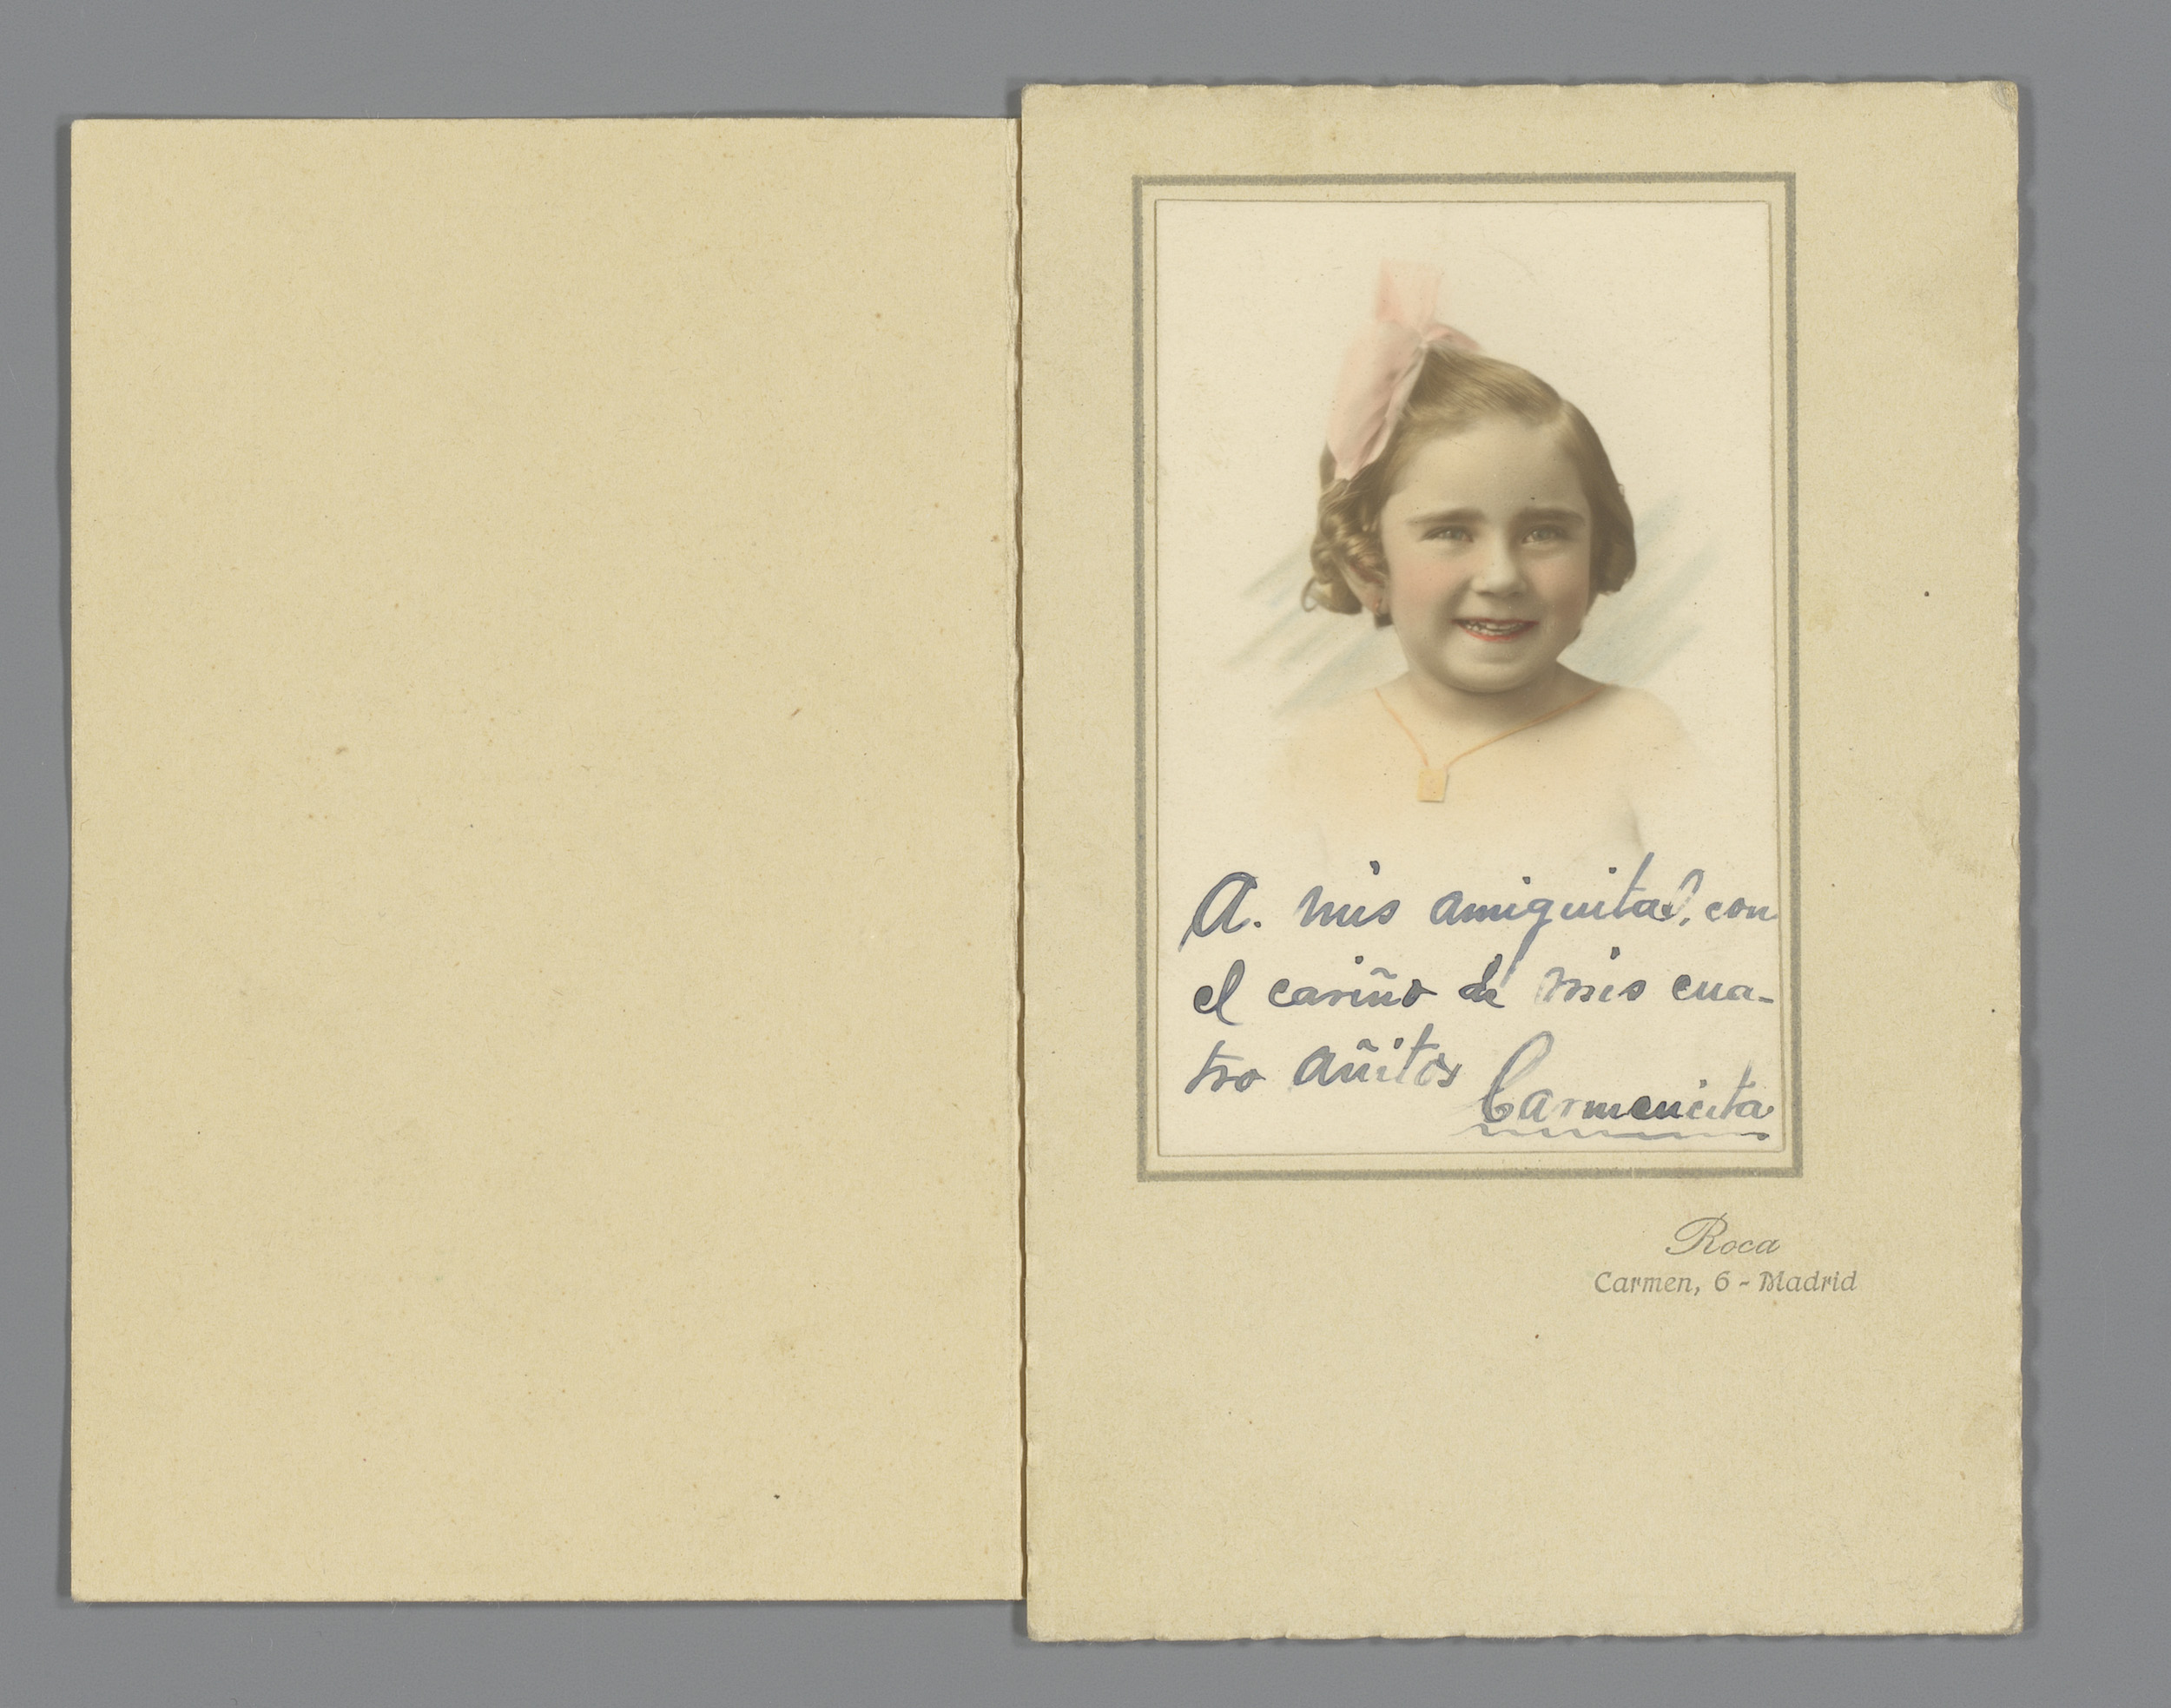 A. mis amiguitas, con
el cariño de mis cua-
tro añitos
Carmencita
Roca
Carmen, 6 - Madrid